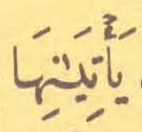 يَأْتِيَٰنِهَا